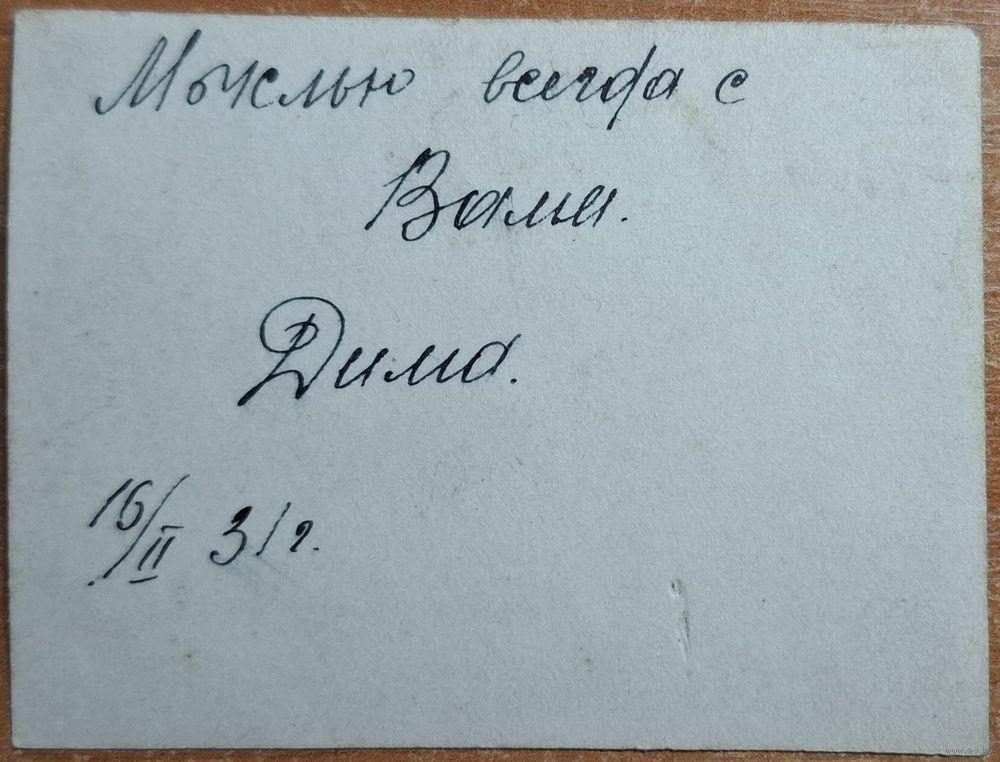 Мыслью всегда с
Вами.
Дима.
16/II 31 г.